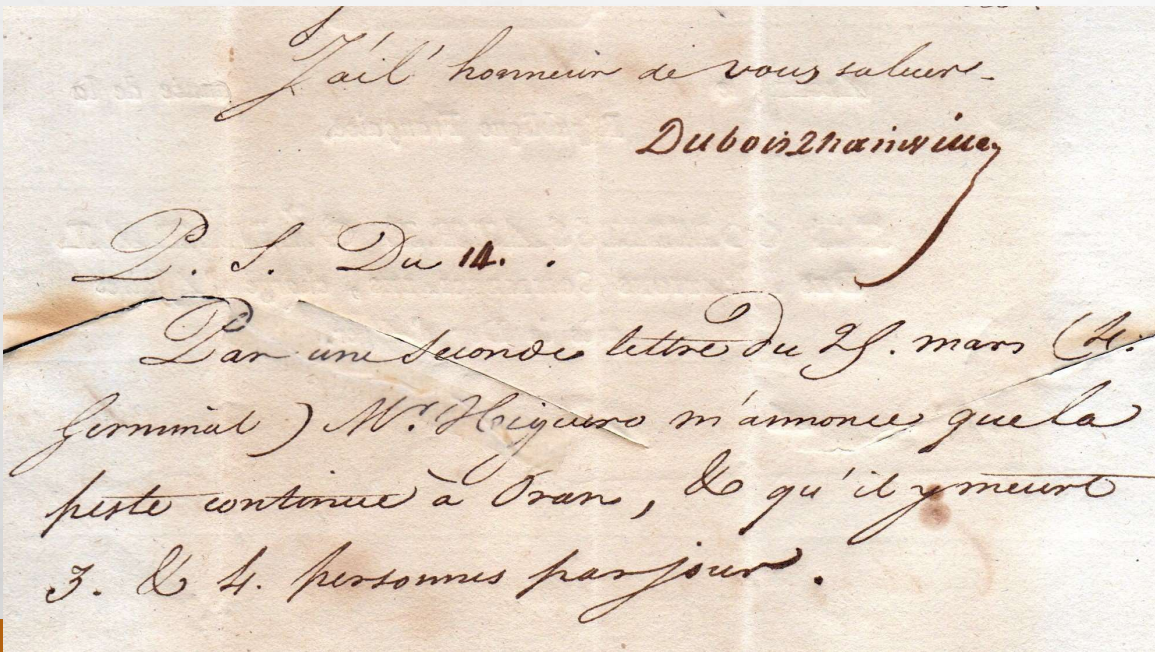 J'ai l'honneur de vous saluer.
Dubois Thainville
P. S. Du 14.
Par une seconde lettre du 25. mars (4.
Germinal) Mr. Higuero m'annonce que la
peste continue à Oran, & qu'il y meurt
3. & 4. personnes par jour.